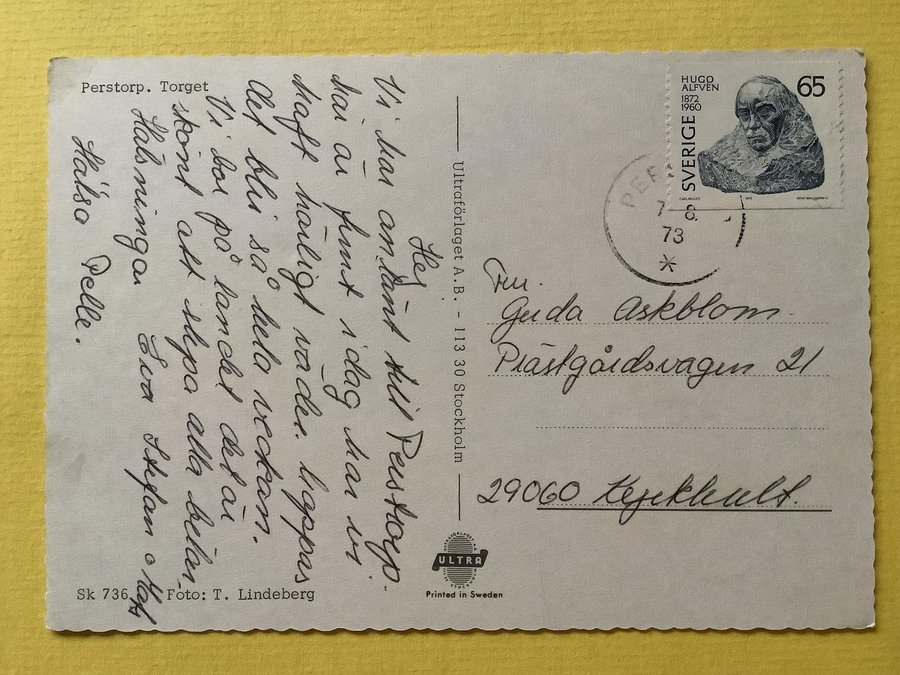 Perstorp. Torget
Hej
Vi har anlänt till Perstorp.
här är fint idag har vi
haft härligt väder. hoppas
det blir så hela veckan.
Vi bor på landet det är
skönt att slipa alla bilar.
Hälsningar Eva Stefan o Mats
Hälsa Pelle.
Sk 736
Foto: T. Lindeberg
Ultraförlaget A.B. - 113 30 Stockholm
ULTRA
Printed in Sweden
HUGO
ALFVEN
1872
1960
SVERIGE
65
PER
7 8.
73
Fru.
Gerda Askblom
Prästgårdsvägen 21
29060 Kyrkhult.